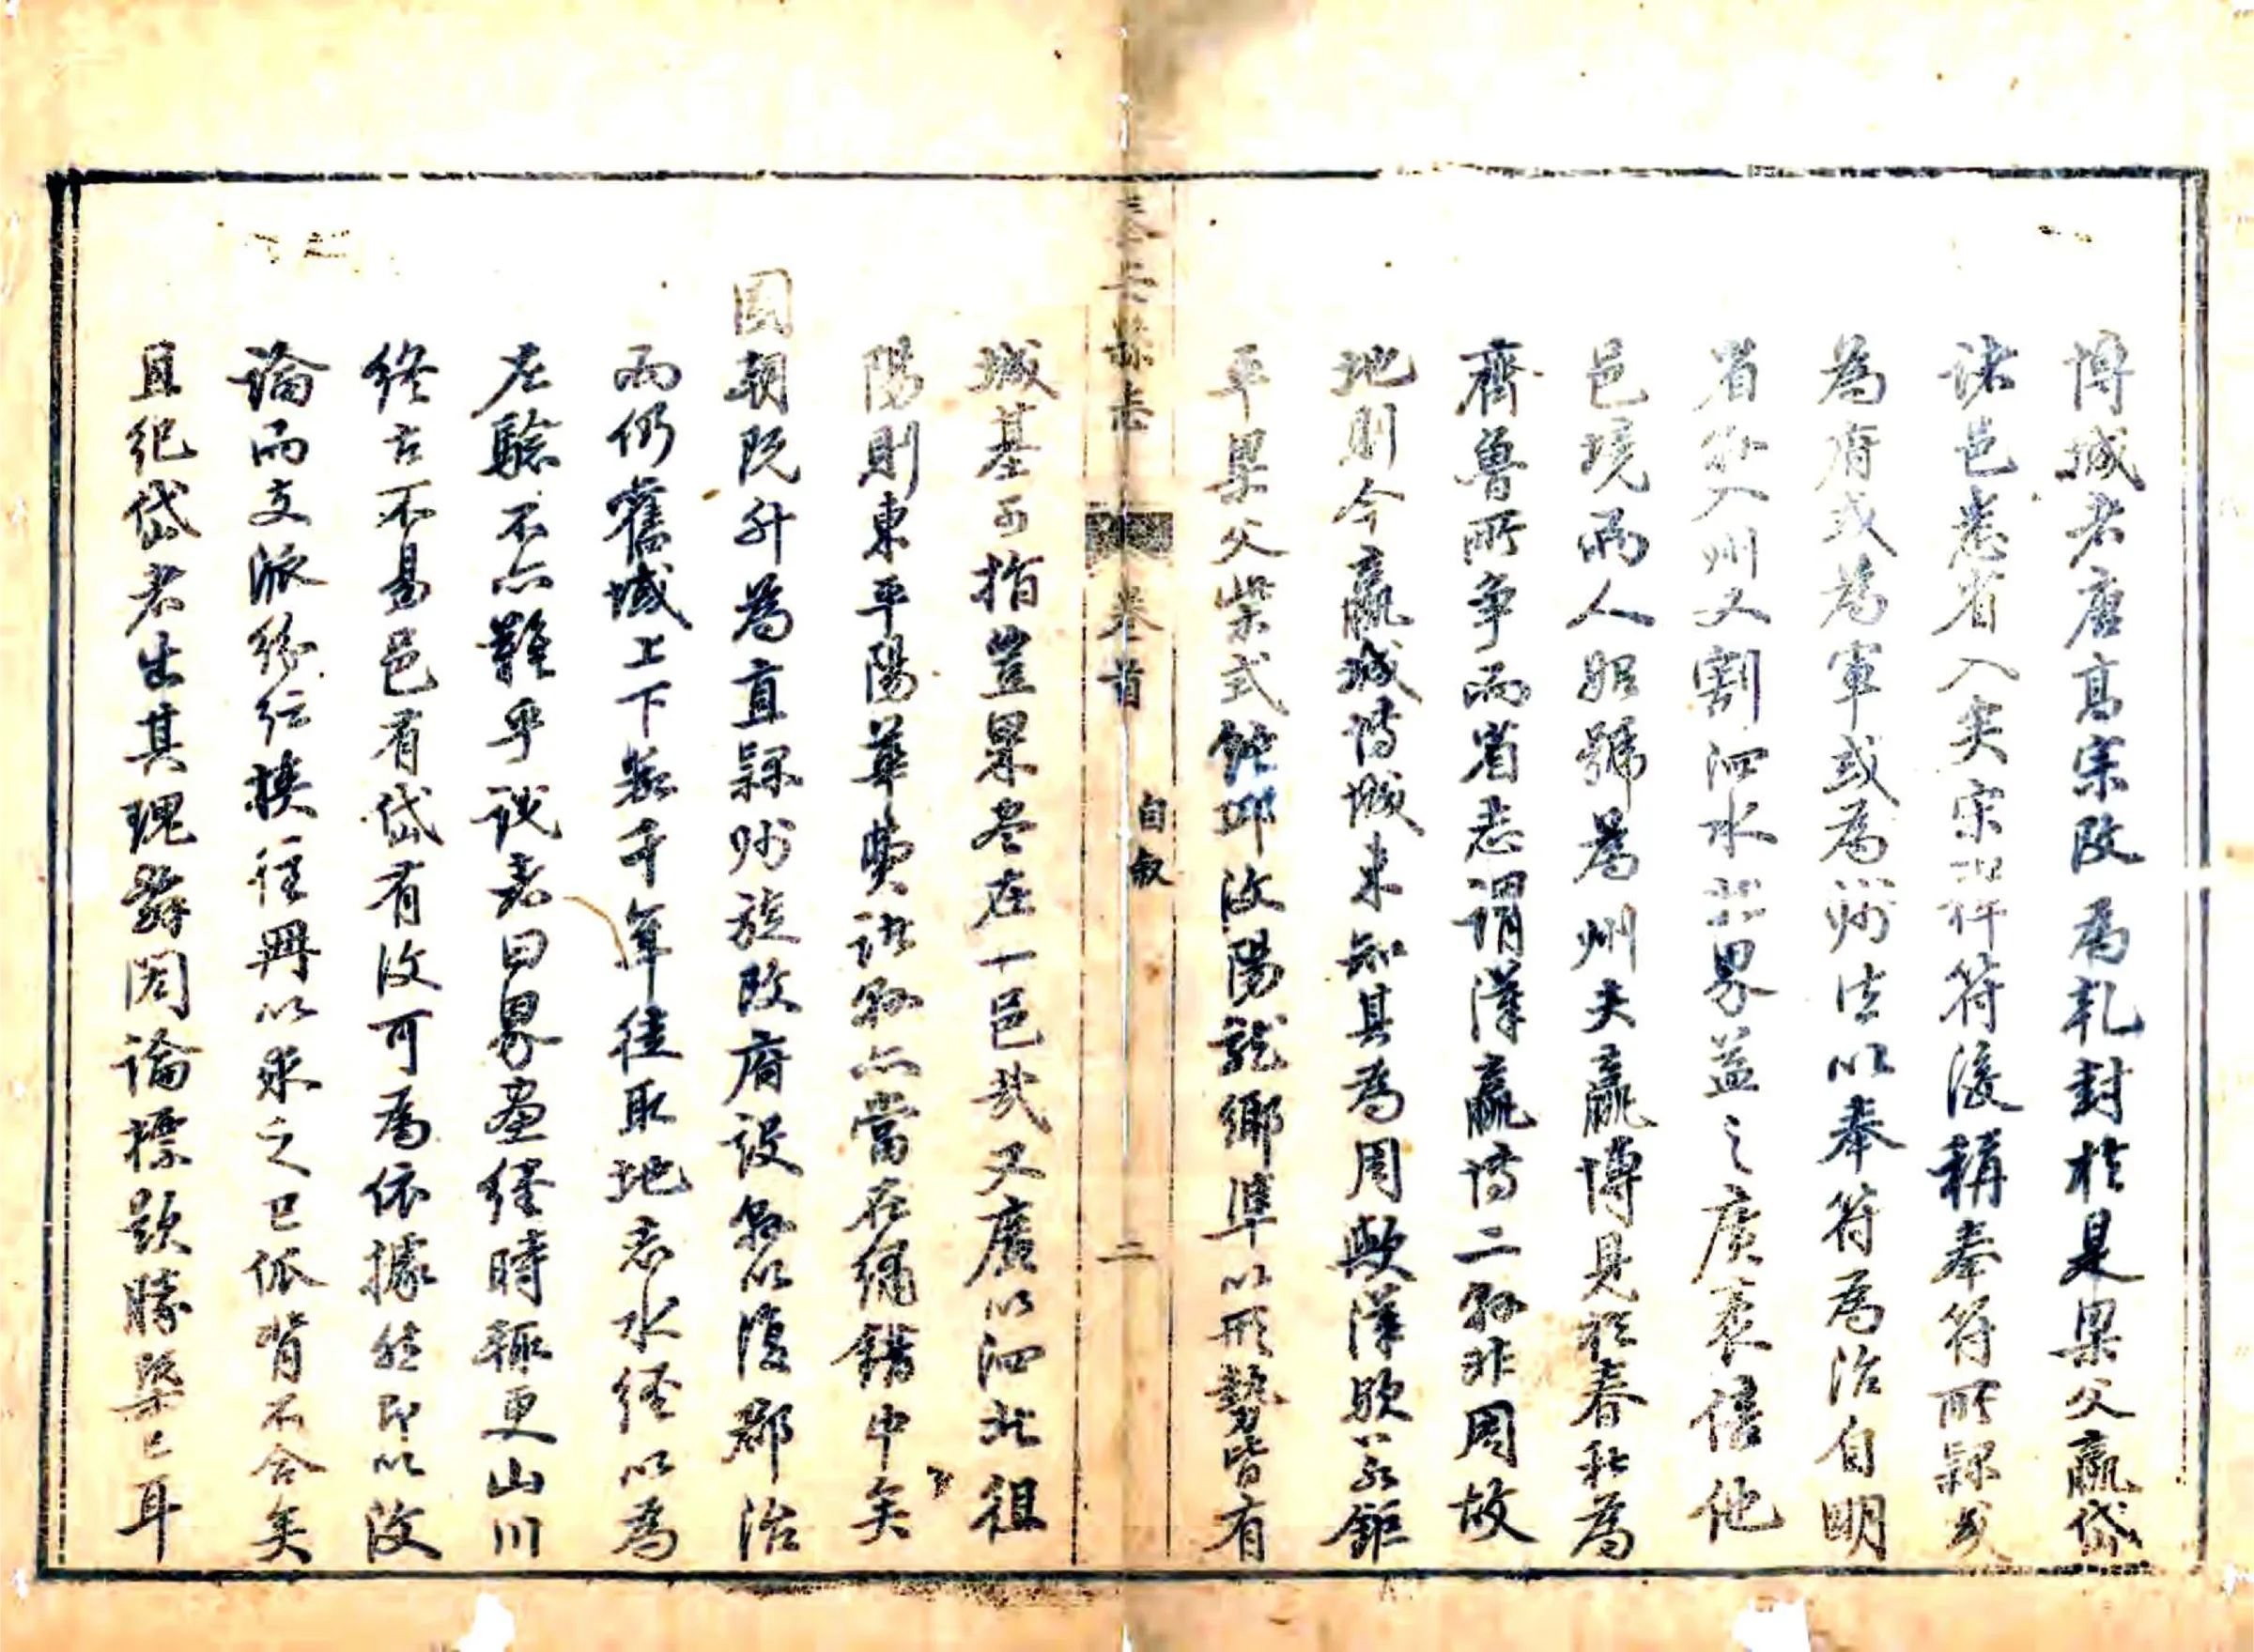 博城者唐髙宗改為乹封於是梁父嬴岱
諸邑悉省入矣宋祥符後稱奉符所隸或
為府或為軍或為州法以奉符為治自明
省入州又割泗水北界益之廣袤倍他
邑境兩人姐號為州夫嬴博見於春秋為
齊魯所爭而省志謂漢嬴博二縣非周故
地則今嬴城博城未知其為周歟漢歟若鉅
平梁父柴式蛇邱汶陽龍鄉準以形勢皆有
泰安縣志
卷首
自敘
二
城基可指豈果盡在一邑哉又廣以泗北徂
陽則東平陽華費諸縣亦當在繩錯中矣
國朝既升為直隸州旋改府設縣以復郡治
而仍舊域上下數千年徒取地志水經以為
左驗不亦難乎談者曰界畫經時輒更山川
終古不易邑有岱有汶可為依據然即以汶
論而支派紛紜挾往冊以求之已派背不合矣
且紀岱者生其瑰辭閎論標題勝槩已耳